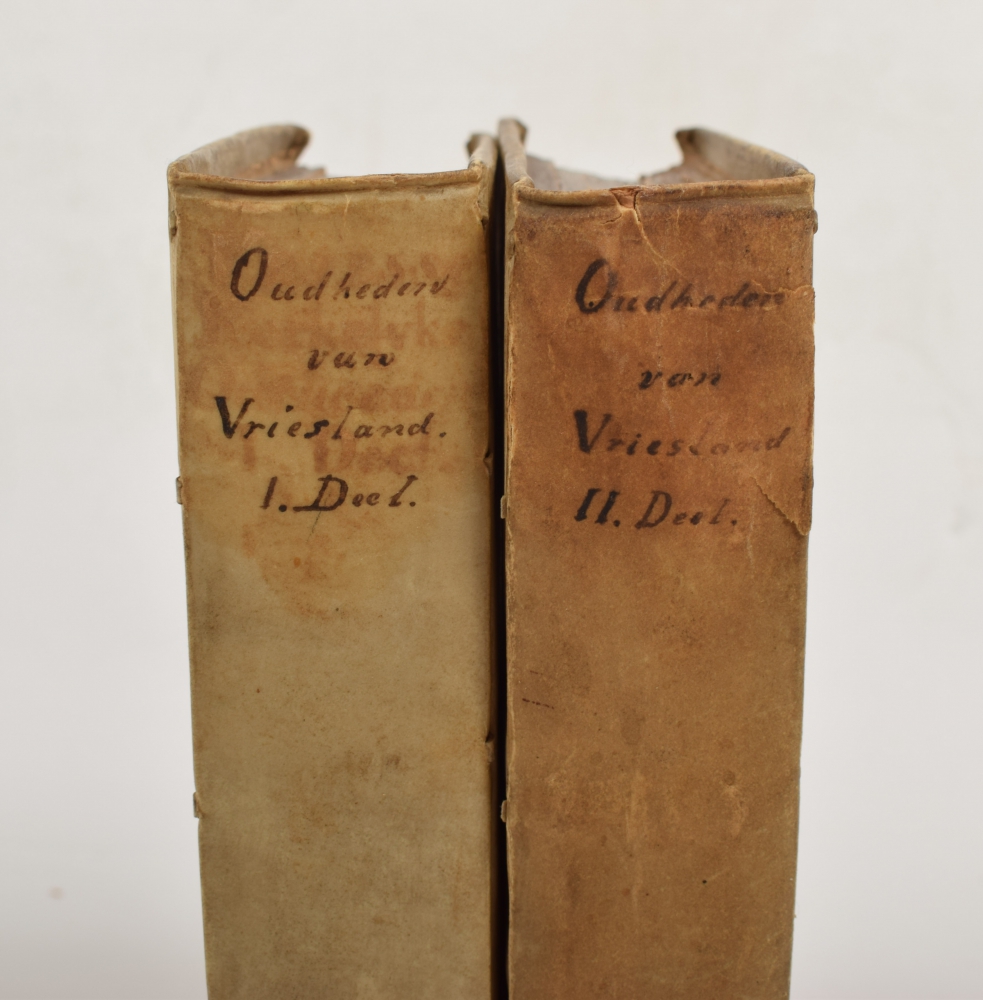 Oudheden
van
Vriesland.
I. Deel.
Oudheden
van
Vriesland
II. Deel.